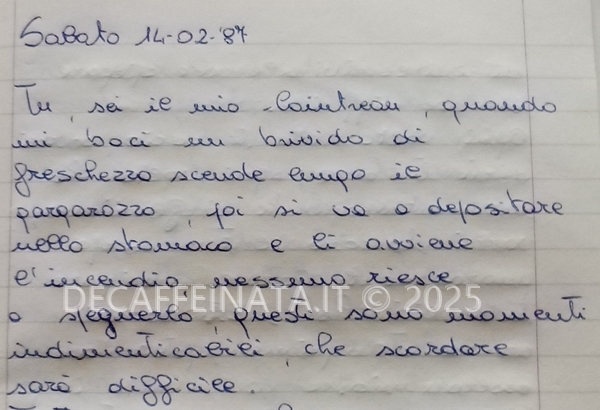 Sabato 14-02-'87
Tu, sei il mio Cointreau, quando
mi baci un brivido di
freschezza scende lungo il
gargarozzo, poi si va a depositare
nello stomaco e lì avviene
l'incendio, nessuno riesce
DECAFFEINATA.IT © 2025
a spegnerlo, questi sono momenti
indimenticabili, che scordare
sarà difficile.